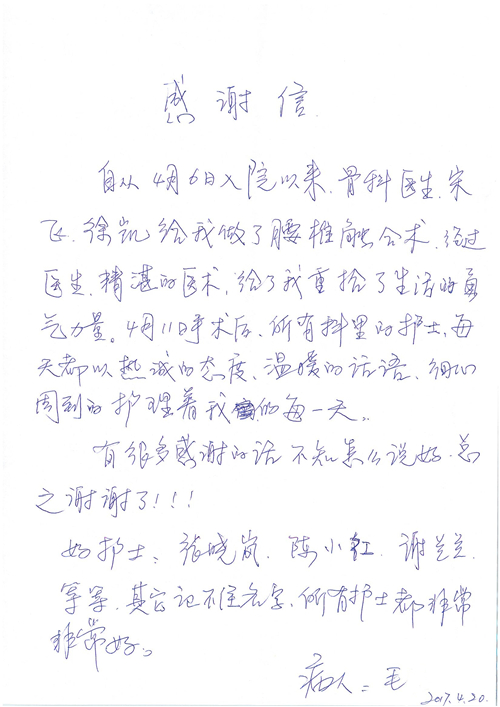 感谢信
自从4月6日入院以来,骨科医生宋
飞、徐凯给我做了腰椎融合术,经过
医生精湛的医术,给了我重拾了生活的勇
气力量。4月11日手术后、所有科里的护士,每
天都以热诚的态度、温暖的话语、细心
周到的护理着我的每一天。
有很多感谢的话不知怎么说好.总
之谢谢了!!!
好护士:张晓岚、陈小红、谢兰兰
等等,其它记不住名字,所有护士都非常
非常好。
病人:毛
2017.4.20.